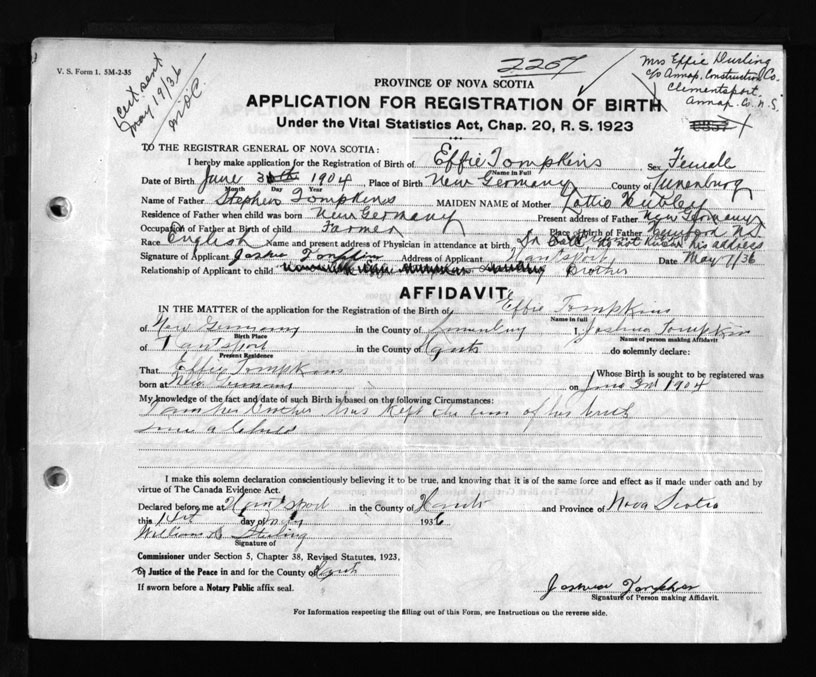 V. S. Form 1. 5M-2-35
1 Cert sent
May 19/36
2207
Mrs Effie Durling
c/o Annap. Construction Co.
Clementsport,
Annap. Co. N.S.
PROVINCE OF NOVA SCOTIA
APPLICATION FOR REGISTRATION OF BIRTH
Under the Vital Statistics Act, Chap. 20, R. S. 1923
TO THE REGISTRAR GENERAL OF NOVA SCOTIA:
I hereby make application for the Registration of Birth of Effie Tompkins Sex Female
Name in Full
Date of Birth June 3 1904 Place of Birth New Germany County of Lunenburg
Month Day Year
Name of Father Stephen Tompkins MAIDEN NAME of Mother Lottie Hubley
Residence of Father when child was born New Germany Present address of Father New Germany
Occupation of Father at Birth of child Farmer Place of Birth of Father N.S.
Race English Name and present address of Physician in attendance at birth do not know his address
Signature of Applicant Joshua Tompkins Address of Applicant Hantsport Date May 7/36
Relationship of Applicant to child Brother
AFFIDAVIT
IN THE MATTER of the application for the Registration of the Birth of Effie Tompkins
Name in full
of New Germany in the County of Lunenburg I, Joshua Tompkins
Birth Place Name of person making Affidavit
of Hantsport in the County of Hants do solemnly declare:
Present Residence
That Effie Tompkins Whose Birth is sought to be registered was
born at New Germany on June 3rd 1904
My knowledge of the fact and date of such Birth is based on the following Circumstances:
I am her Brother has kept the of her birth
since a child
I make this solemn declaration conscientiously believing it to be true, and knowing that it is of the same force and effect as if made under oath and by
virtue of The Canada Evidence Act.
Declared before me at Hantsport in the County of Hants and Province of Nova Scotia
this day of May 1936
William Sterling
Signature of
Commissioner under Section 5, Chapter 38, Revised Statutes, 1923,
or Justice of the Peace in and for the County of Hants
If sworn before a Notary Public affix seal.
Joshua Tompkins
Signature of Person making Affidavit.
For Information respecting the filling out of this Form, see Instructions on the reverse side.